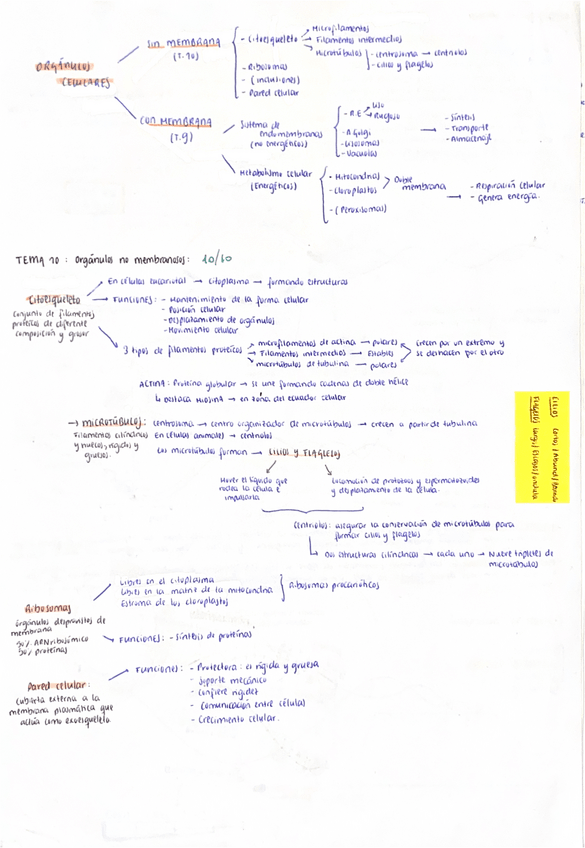 ORGÁNULOS
CELULARES
SIN MEMBRANA
(T.10)
- Citoesqueleto
Microfilamentos
Filamentos intermedios
Microtúbulos
- centrosoma → centriolos
- cilios y flagelos
- Ribosomas
- (inclusiones)
- Pared celular
CON MEMBRANA
(T.9)
Sistema de
endomembranas
(no energéticos)
- R.E
Liso
Rugoso
- A. Golgi
- Lisosomas
- Vacuolas
- Síntesis
- Transporte
- Almacenaje
Metabolismo celular
(Energéticos)
- Mitocondrias
- Cloroplastos
- (Peroxisomas)
Doble
membrana
- Respiración celular
- Genera energía.
TEMA 10: Orgánulos no membranosos: 10/10
Citoesqueleto
conjunto de filamentos
proteicos de diferente
composición y grosor
En células eucariotas → citoplasma → formando estructuras
FUNCIONES: - Mantenimiento de la forma celular
- Posición celular
- Desplazamiento de orgánulos
- Movimiento celular
3 tipos de filamentos proteicos
microfilamentos de actina → polares
Filamentos intermedios → Estables
microtúbulos de tubulina → polares
Crecen por un extremo y
se deshacen por el otro
ACTINA: Proteína globular → se une formando cadenas de doble hélice
↳ destaca MIOSINA → en zona del ecuador celular
→ MICROTÚBULOS: centrosoma → centro organizador de microtúbulos → crecen a partir de tubulina
Filamentos cilíndricos
y huecos, rígidos y
gruesos.
En células animales → centriolos
Los microtúbulos forman → CILIOS Y FLAGELOS
Mover el líquido que
rodea la célula e
impulsarla
Locomoción de protozoos y espermatozoides
y desplazamiento de la célula.
CILIOS cortos / Abund /
FLAGELOS largos / Escasos / ondula
Centriolos: asegurar la conservación de microtúbulos para
formar cilios y flagelos
Dos estructuras cilíndricas → cada uno → Nueve tripletes de
microtúbulos
Ribosomas
orgánulos desprovistos de
membrana
50% ARN ribosómico
50% proteínas
Libres en el citoplasma
Libres en la matriz de la mitocondria
Estroma de los cloroplastos
Ribosomas procarióticos
FUNCIONES: - Síntesis de proteínas
Pared celular:
cubierta externa a la
membrana plasmática que
actúa como exoesqueleto.
FUNCIONES: - Protectora: es rígida y gruesa
- Soporte mecánico
- Confiere rigidez
- Comunicación entre células
- Crecimiento celular.